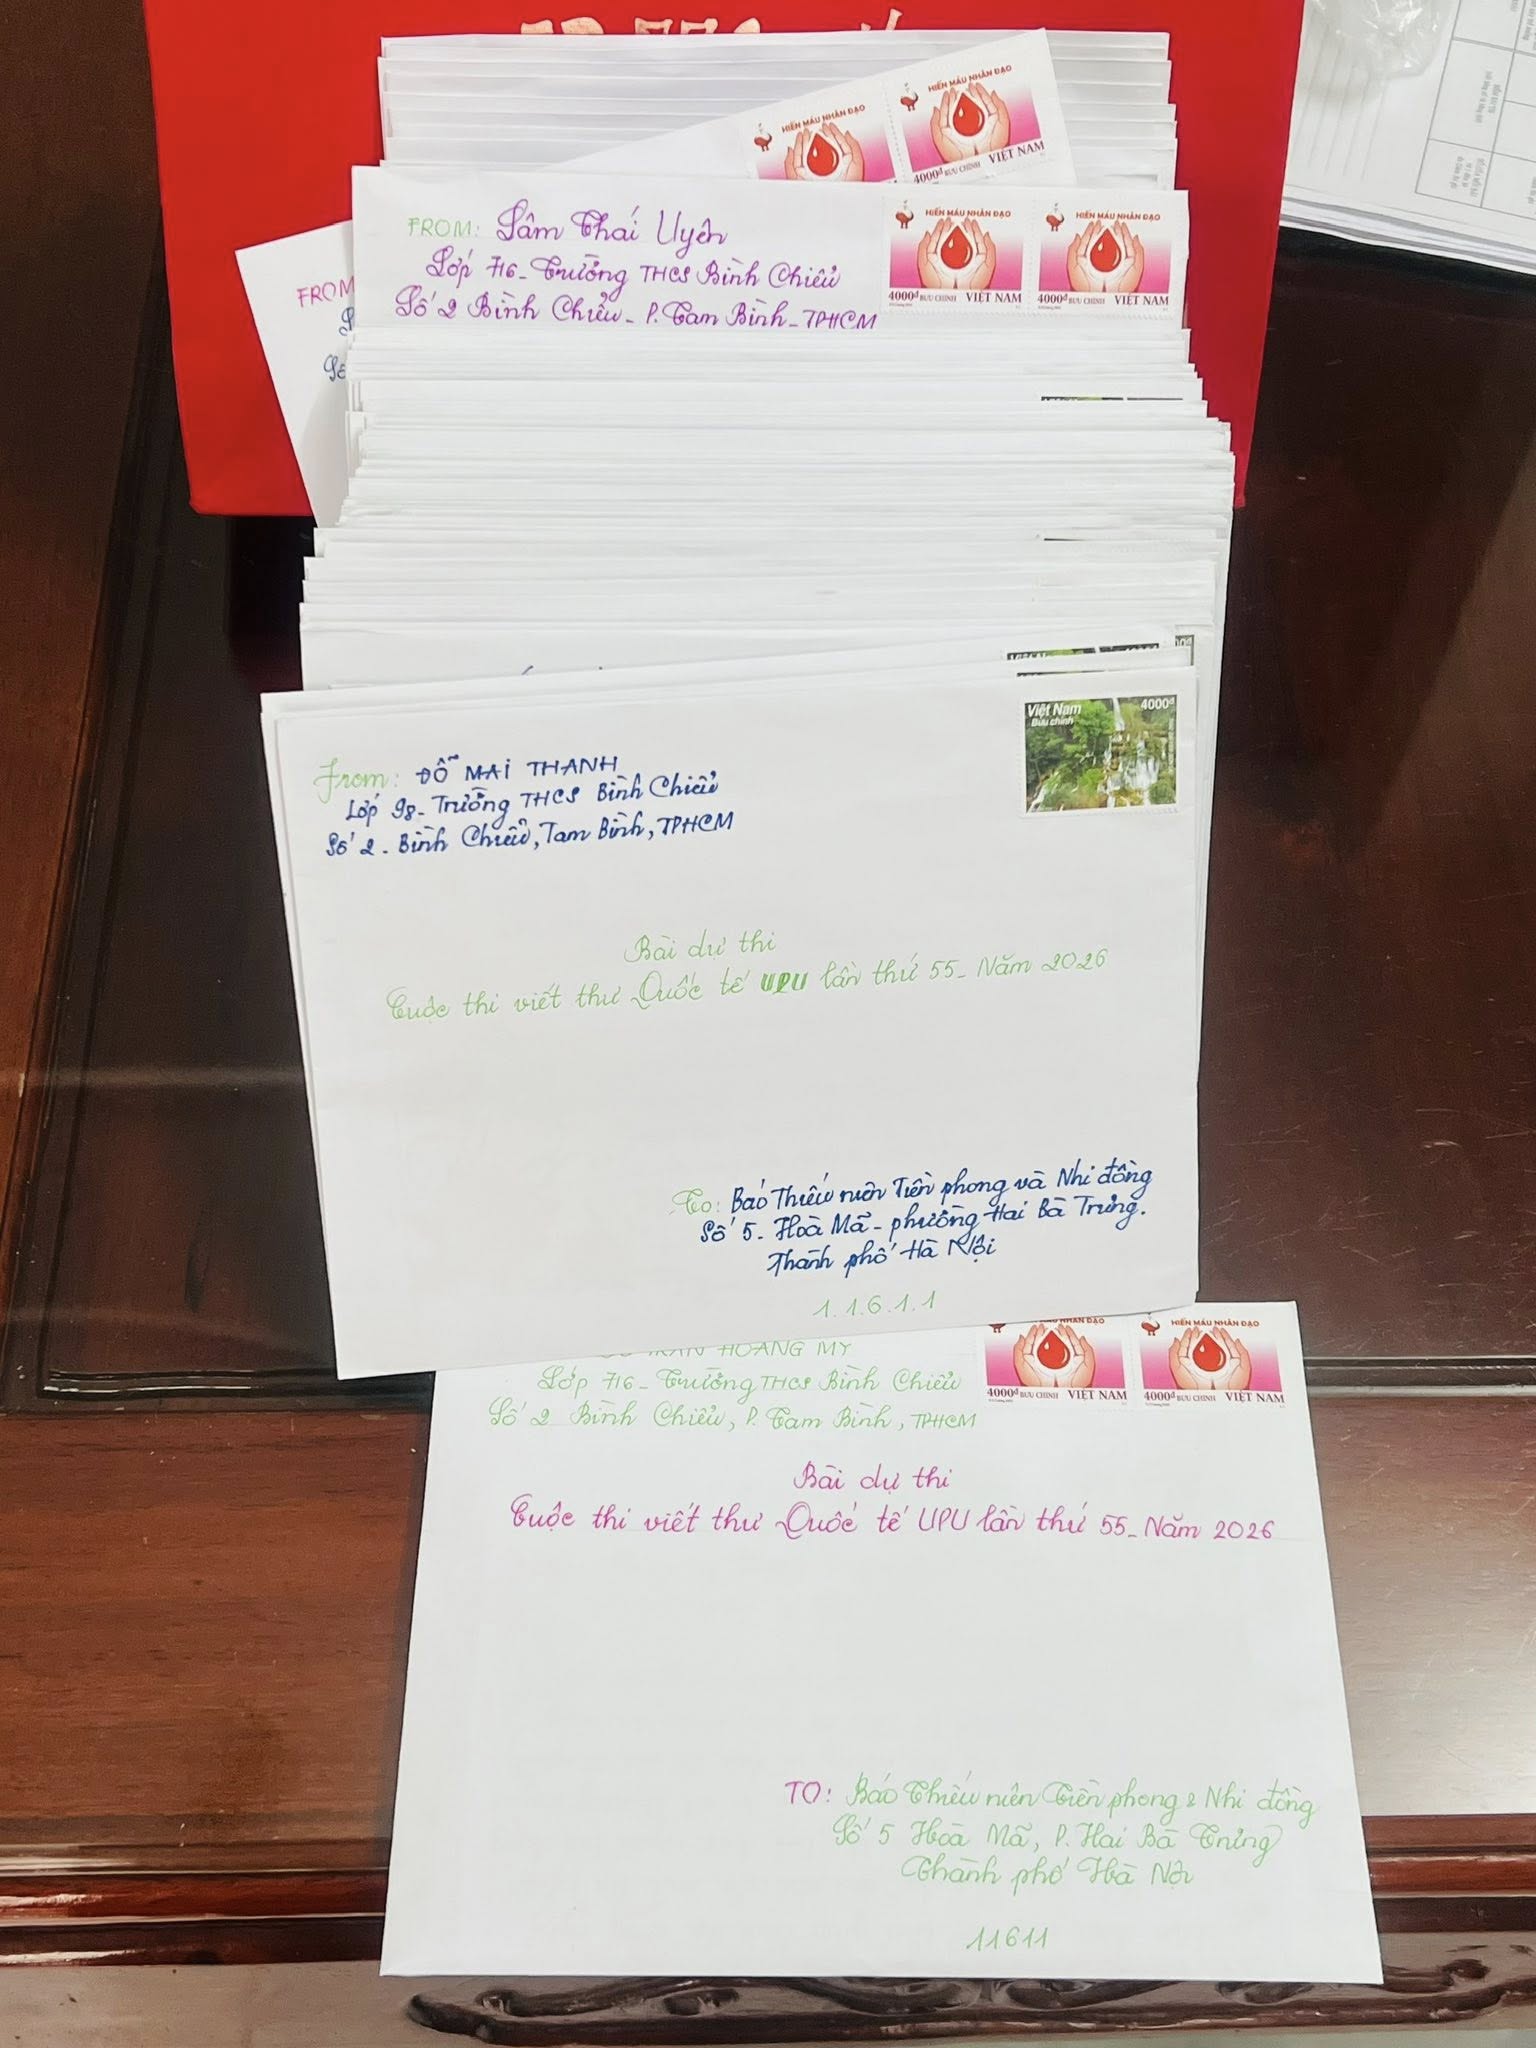 HIẾN MÁU NHÂN ĐẠO
HIẾN MÁU NHÂN ĐẠO
4000đ BƯU CHÍNH VIỆT NAM
FROM: Lâm Thái Uyên
Lớp 7/6 - Trường THCS Bình Chiểu
Số 2 Bình Chiểu - P. Tam Bình - TPHCM
HIẾN MÁU NHÂN ĐẠO
4000đ BƯU CHÍNH VIỆT NAM
HIẾN MÁU NHÂN ĐẠO
4000đ BƯU CHÍNH VIỆT NAM
FROM
Số
Việt Nam 4000đ
Bưu chính
From: ĐỖ MAI THANH
Lớp 9/8 - Trường THCS Bình Chiểu
Số 2 - Bình Chiểu, Tam Bình, TPHCM
Bài dự thi
Cuộc thi viết thư Quốc tế UPU lần thứ 55 - Năm 2026
To: Báo Thiếu niên Tiền phong và Nhi đồng
Số 5 - Hoà Mã - phường Hai Bà Trưng.
Thành phố Hà Nội
1.1.6.1.1
TRẦN HOÀNG MY
Lớp 7/6 - Trường THCS Bình Chiểu
Số 2 Bình Chiểu, P. Tam Bình, TPHCM
HIẾN MÁU NHÂN ĐẠO
4000đ BƯU CHÍNH VIỆT NAM
HIẾN MÁU NHÂN ĐẠO
4000đ BƯU CHÍNH VIỆT NAM
Bài dự thi
Cuộc thi viết thư Quốc tế UPU lần thứ 55 - Năm 2026
TO: Báo Thiếu niên Tiền phong & Nhi đồng
Số 5 Hoà Mã, P. Hai Bà Trưng
Thành phố Hà Nội
11611